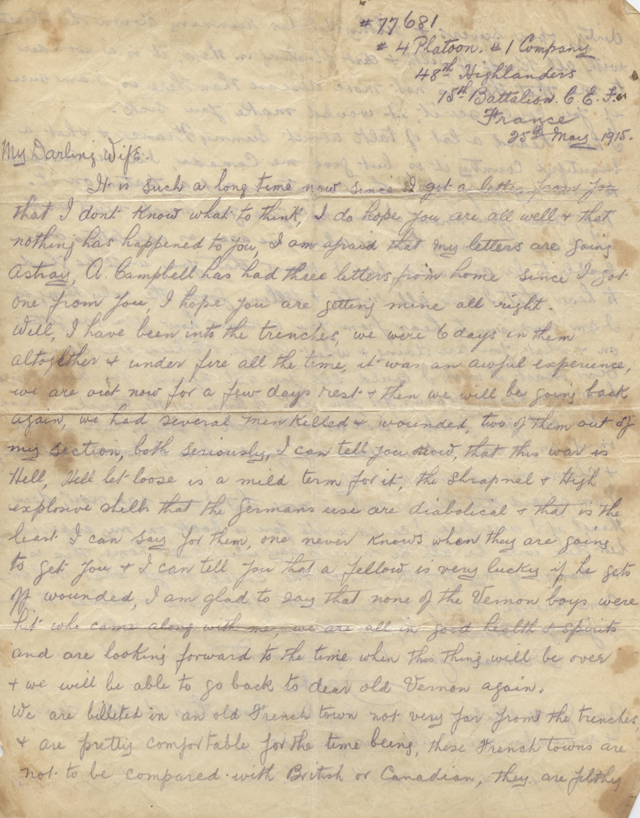 #77681
#4 Platoon. #1 Company
48th Highlanders
15th Battalion C. E. F.
France
25th May 1915.
My Darling Wife.
It is such a long time now since I got a letter from you
that I dont know what to think, I do hope you are all well & that
nothing has happened to you, I am afraid that my letters are going
astray, A Campbell has had three letters from home since I got
one from you, I hope you are getting mine all right.
Well, I have been into the trenches, we were 6 days in them
altogether & under fire all the time, it was an awful experience,
we are out now for a few days rest & then we will be going back
again, we had several men killed & wounded, two of them out of
my section, both seriously, I can tell you now, that this war is
Hell, Hell let loose is a mild term for it, the Shrapnel & High
explosive shells that the Germans use are diabolical & that is the
least I can say for them, one never knows when they are going
to get you & I can tell you that a fellow is very lucky if he gets
off wounded, I am glad to say that none of the Vernon boys were
hit who came along with me, we are all in good health & spirits
and are looking forward to the time when this thing will be over
& we will be able to go back to dear old Vernon again.
We are billeted in an old French town not very far from the trenches
& are pretty comfortable for the time being, these French towns are
not to be compared with British or Canadian, they are filthy